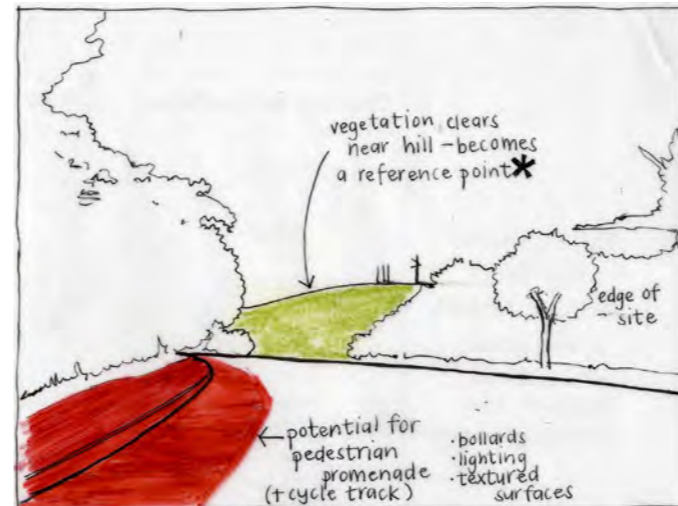 vegetation clears
near hill - becomes
a reference point*
edge of
site
potential for
pedestrian
promenade
(+ cycle track)
· bollards
· lighting
· textured
surfaces